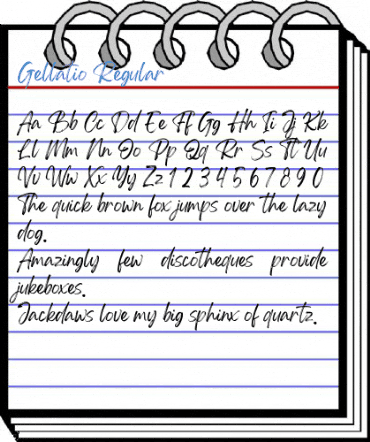 Gellatio Regular
Aa Bb Cc Dd Ee Ff Gg Hh Ii Jj Kk
Ll Mm Nn Oo Pp Qq Rr Ss Tt Uu
Vv Ww Xx Yy Zz 1 2 3 4 5 6 7 8 9 0
The quick brown fox jumps over the lazy
dog.
Amazingly few discotheques provide
jukeboxes.
Jackdaws love my big sphinx of quartz.